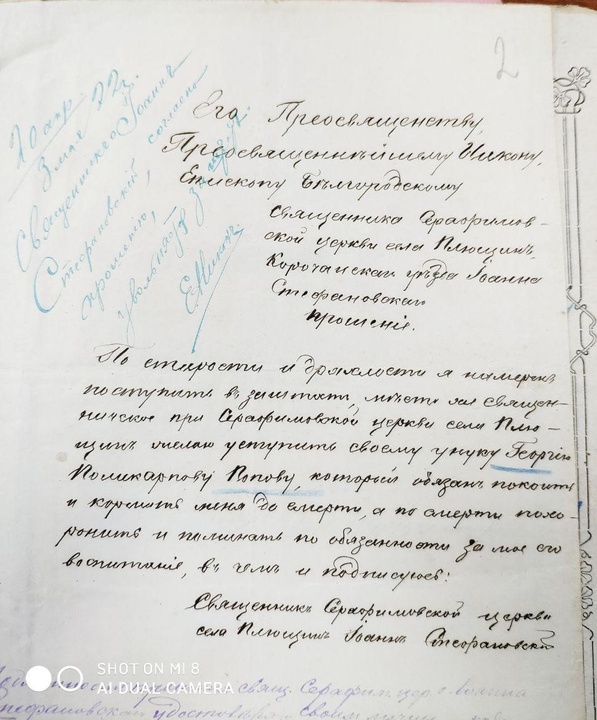 2
20 апр.
3 мая 22 г.
Священника Іоанна
Стефановскаго, согласно
прошенію,
уволить за штатъ.
Е. Никонъ
Его Преосвященству,
Преосвященнѣйшему Никону,
Епископу Бѣлгородскому
Священника Серафимов-
ской церкви села Плющинъ,
Корочанскаго уѣзда Іоанна
Стефановскаго
прошеніе.
По старости и дряхлости я намѣренъ
поступить въ заштатъ, мѣсто же священ-
ническое при Серафимовской церкви села Плю-
щинъ желаю уступить своему унуку Георгію
Поликарпову Попову, который обязанъ покоить
и кормить меня до смерти, а по смерти похо-
ронить и поминать по обязанности за мое его
воспитаніе, въ чемъ и подписуюсь:
Священникъ Серафимовской церкви
села Плющинъ Іоаннъ Стефановскій
свящ. Серафим. цер. Іоанна
Стефановскаго удостовѣряю своимъ
SHOT ON MI 8
AI DUAL CAMERA